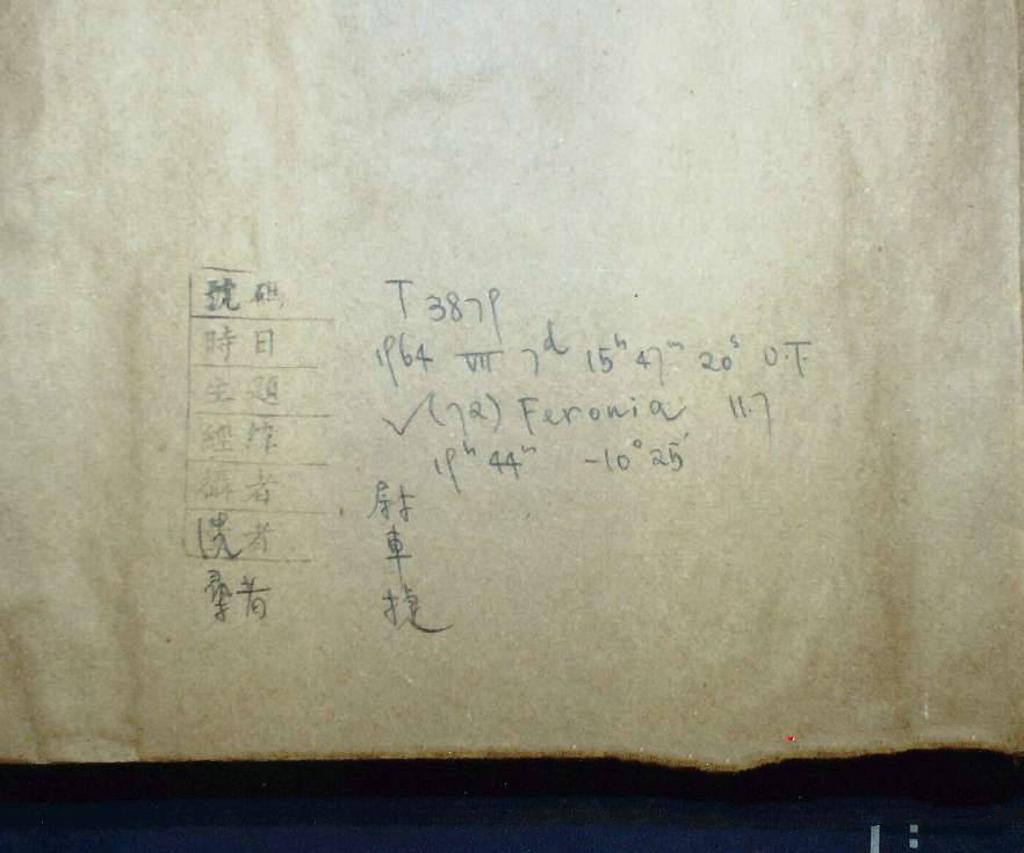 號碼 T 3879
時日 1964 VII 7ᵈ 15ʰ 47ᵐ 20ˢ U.T.
主題 ✓(72) Feronia 11.7
經緯 19ʰ 44ᵐ -10° 25′
攝者
洗者 車
尋者 捷